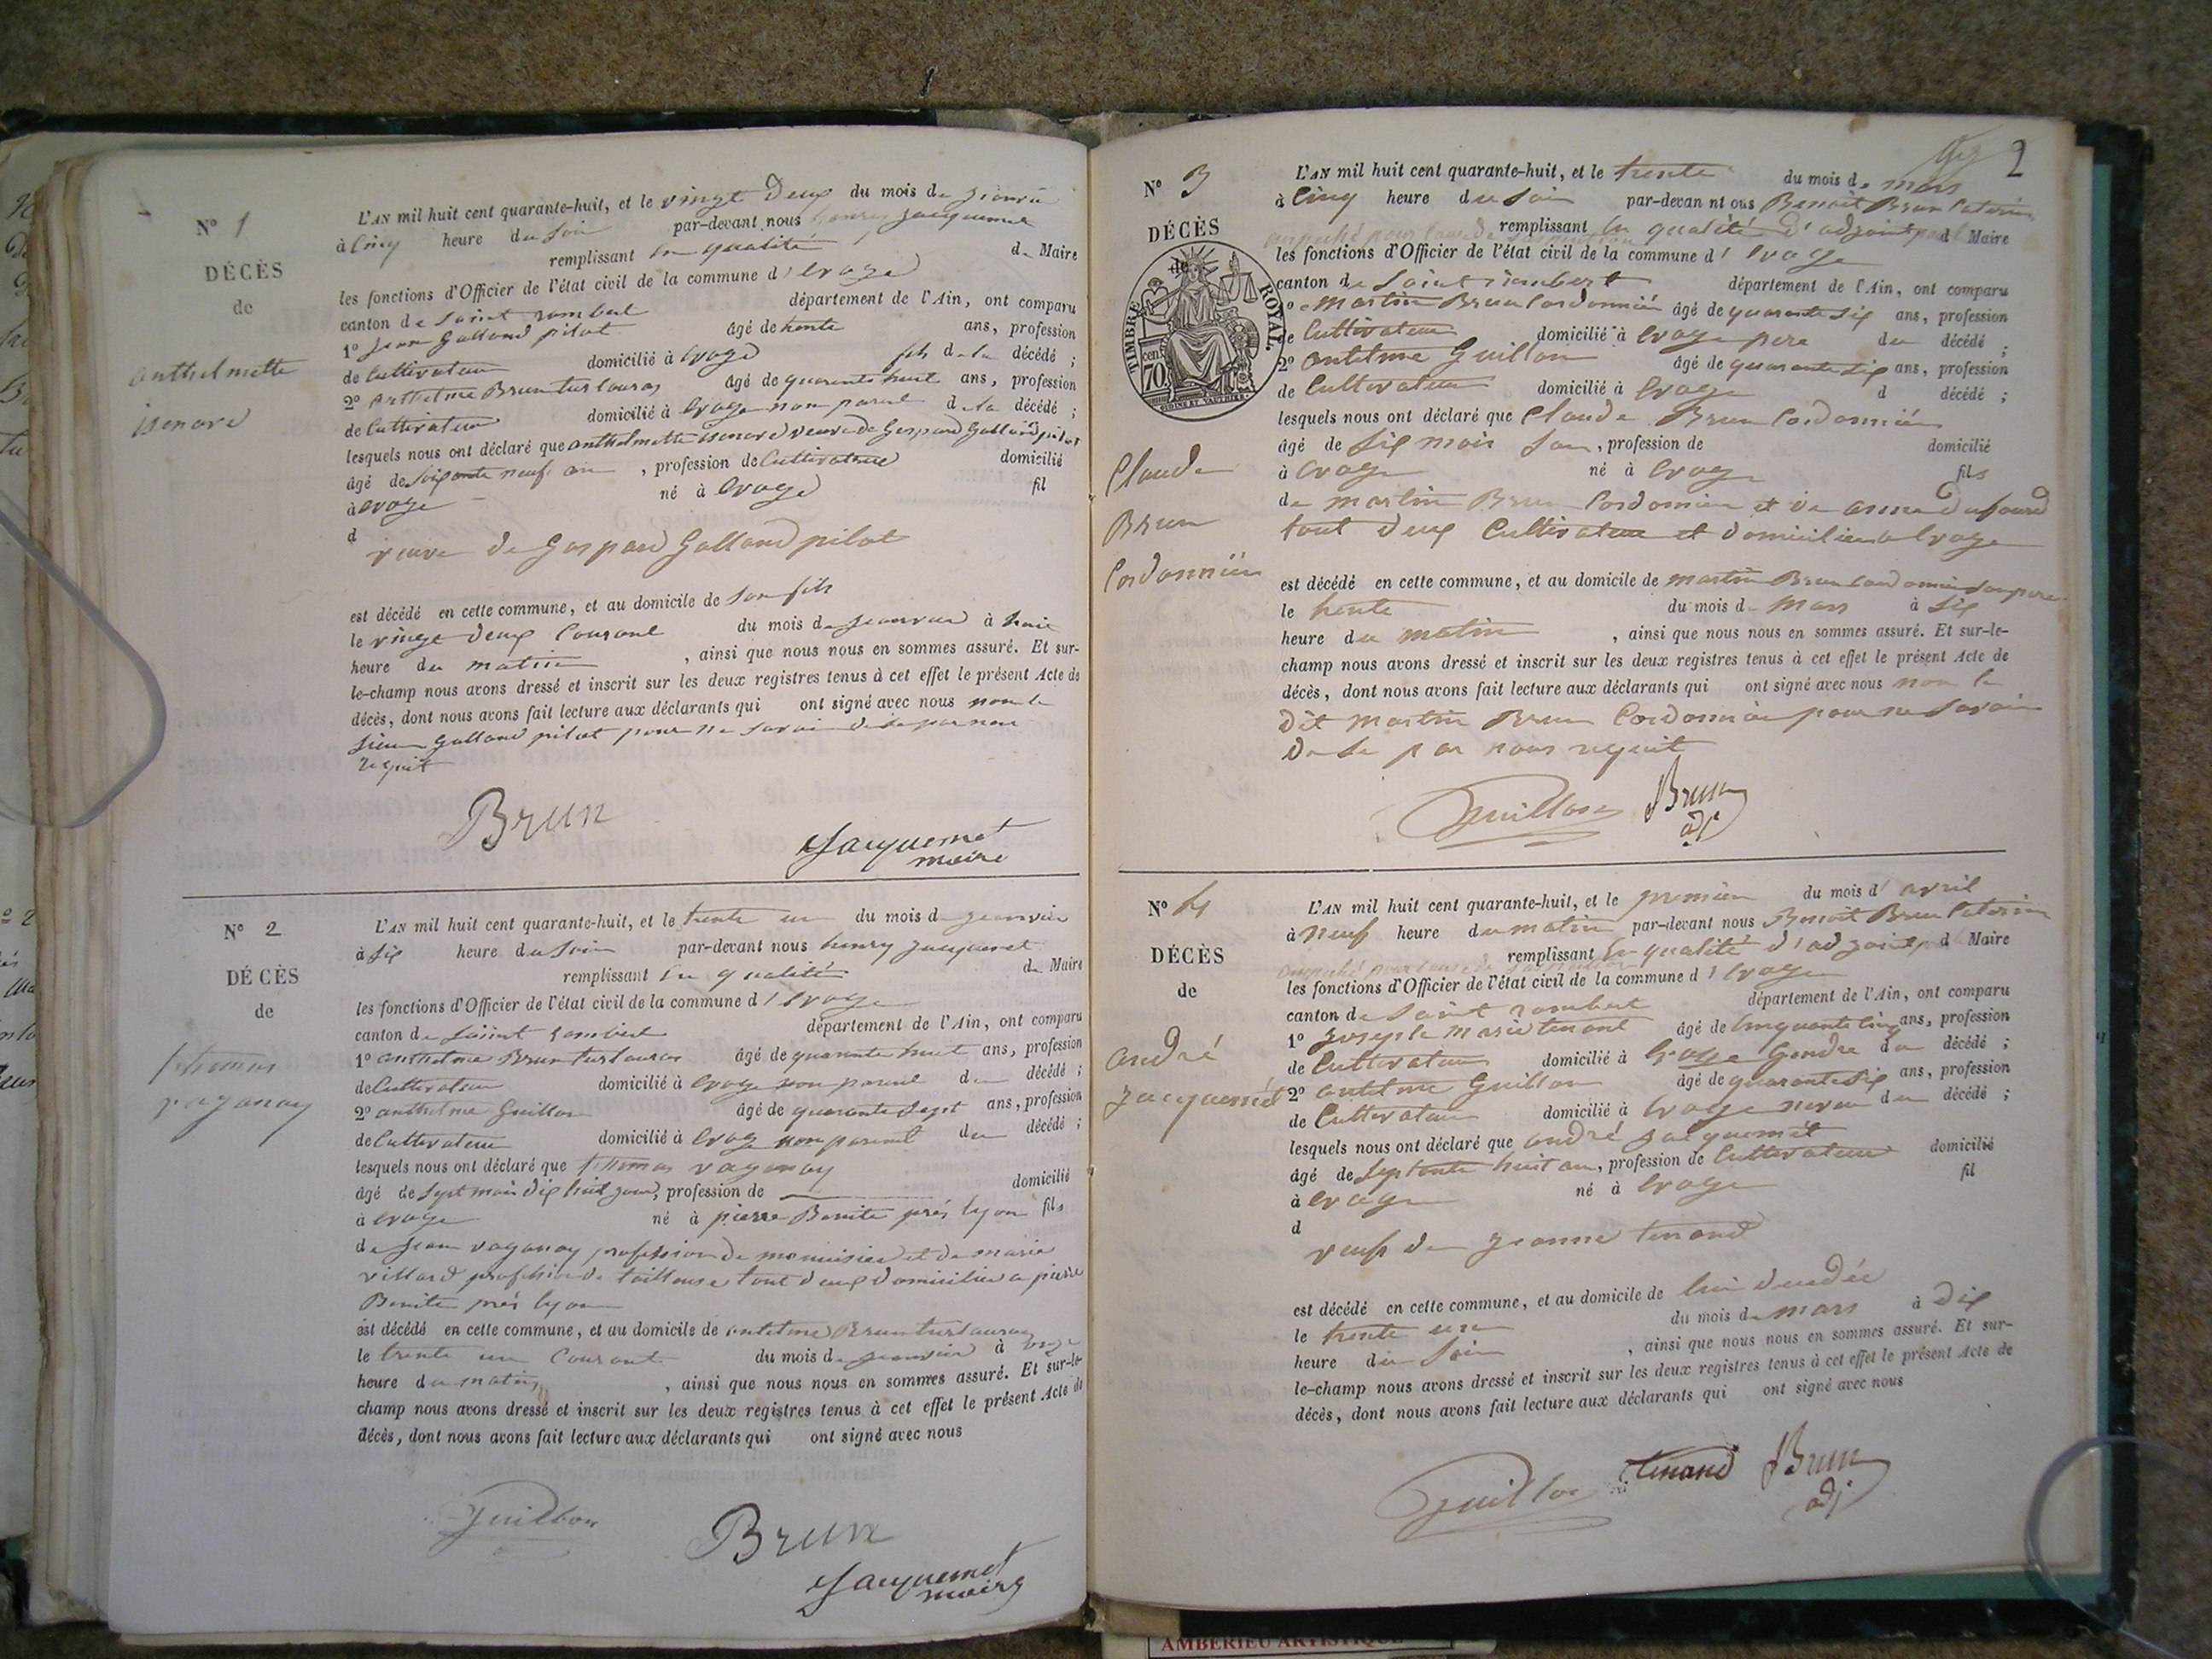 N° 1
DÉCÈS
de
anthelmette
isenard
L'AN mil huit cent quarante-huit, et le vingt deux du mois de janvié
à cinq heure du soir par-devant nous henry jacquemet
remplissant en qualité de Maire
les fonctions d'Officier de l'état civil de la commune d' evoge
canton de saint rambert département de l'Ain, ont comparu
1° jean Galland pilat âgé de trente ans, profession
de Cultivateur domicilié à evoge fils de la décédé ;
2° anthelme Brun turlauras âgé de quarente huit ans, profession
de Cultivateur domicilié à evoge non parent de la décédé ;
lesquels nous ont déclaré que anthelmette isenard veuve de Gaspard Galland pilat
âgé de soixante neuf an , profession de Cultivatrice domicilié
à evoge né à evoge fil
d
veuve de Gaspard Galland pilat
est décédé en cette commune, et au domicile de son fils
le vingt deux courant du mois de janvier à
heure du matin , ainsi que nous nous en sommes assuré. Et sur-
le-champ nous avons dressé et inscrit sur les deux registres tenus à cet effet le présent Acte de
décès, dont nous avons fait lecture aux déclarants qui ont signé avec nous non le
sieur Galland pilat pour ne savoir de se par nous
requit
Brun
Jacquemet
maire
N° 2
DÉCÈS
de
thomas
vaganay
L'AN mil huit cent quarante-huit, et le trente un du mois de janvier
à six heure du soir par-devant nous henry jacquemet
remplissant en qualité de Maire
les fonctions d'Officier de l'état civil de la commune d' evoge
canton de saint rambert département de l'Ain, ont comparu
1° anthelme Brun turlauras âgé de quarante huit ans, profession
de Cultivateur domicilié à evoge non parent du décédé ;
2° anthelme Guillon âgé de quarante sept ans, profession
de Cultivateur domicilié à evoge non parent du décédé ;
lesquels nous ont déclaré que thomas vaganay
âgé de sept mois dix huit jour, profession de domicilié
à evoge né à pierre Benite près lyon fils
de jean vaganay profession de menuisier et de marie
villard profession de tailleuse tout deux domicilié a pierre
Benite près lyon
est décédé en cette commune, et au domicile de antelme Brun turlauras
le trente un courant du mois de janvier à onze
heure du matin , ainsi que nous nous en sommes assuré. Et sur-le-
champ nous avons dressé et inscrit sur les deux registres tenus à cet effet le présent Acte de
décès, dont nous avons fait lecture aux déclarants qui ont signé avec nous
Guillon
Brun
Jacquemet
maire
2
N° 3
DÉCÈS
de
TIMBRE ROYAL.
70 cent.
Claude
Brun
Cordonnier
L'AN mil huit cent quarante-huit, et le trente du mois de mars
à cinq heure du soir par-devan nt ous Benoit Brun Caterin
remplissant en qualité d'adjoint d Maire
les fonctions d'Officier de l'état civil de la commune d' evoge
canton de saint rambert département de l'Ain, ont comparu
1° Martin Brun Cordonnier âgé de quarante six ans, profession
de Cultivateur domicilié à evoge pere du décédé ;
2° antelme Guillon âgé de quarante six ans, profession
de Cultivateur domicilié à evoge d décédé ;
lesquels nous ont déclaré que Claude Brun Cordonnier
âgé de six mois , profession de domicilié
à evoge né à evoge fils
de martin Brun Cordonnier et de anne dufourd
tout deux Cultivateur et domicilier a evoge
est décédé en cette commune, et au domicile de martin Brun Cordonnier son pere
le trente du mois de mars à six
heure du matin , ainsi que nous nous en sommes assuré. Et sur-le-
champ nous avons dressé et inscrit sur les deux registres tenus à cet effet le présent Acte de
décès, dont nous avons fait lecture aux déclarants qui ont signé avec nous non le
dit Martin Brun Cordonnier pour ne savoir
de se par nous requit
Guillon
Brun
adj
N° 4
DÉCÈS
de
andré
jacquemet
L'AN mil huit cent quarante-huit, et le premier du mois d' avril
à neuf heure du matin par-devant nous Benoit Brun Caterin
remplissant en qualité d'adjoint d Maire
les fonctions d'Officier de l'état civil de la commune d' evoge
canton de saint rambert département de l'Ain, ont comparu
1° joseph marie tenant âgé de cinquante cinq ans, profession
de Cultivateur domicilié à evoge Gendre du décédé ;
2° antelme Guillon âgé de quarante six ans, profession
de Cultivateur domicilié à evoge neveu du décédé ;
lesquels nous ont déclaré que andré jacquemet
âgé de septante huit an, profession de Cultivateur domicilié
à evoge né à evoge fil
d
veuf de jeanne tenand
est décédé en cette commune, et au domicile de
le trente un du mois de mars à dix
heure du soir , ainsi que nous nous en sommes assuré. Et sur-
le-champ nous avons dressé et inscrit sur les deux registres tenus à cet effet le présent Acte de
décès, dont nous avons fait lecture aux déclarants qui ont signé avec nous
Guillon
tenand
Brun
adj
AMBERIEU ARTISTIQUE